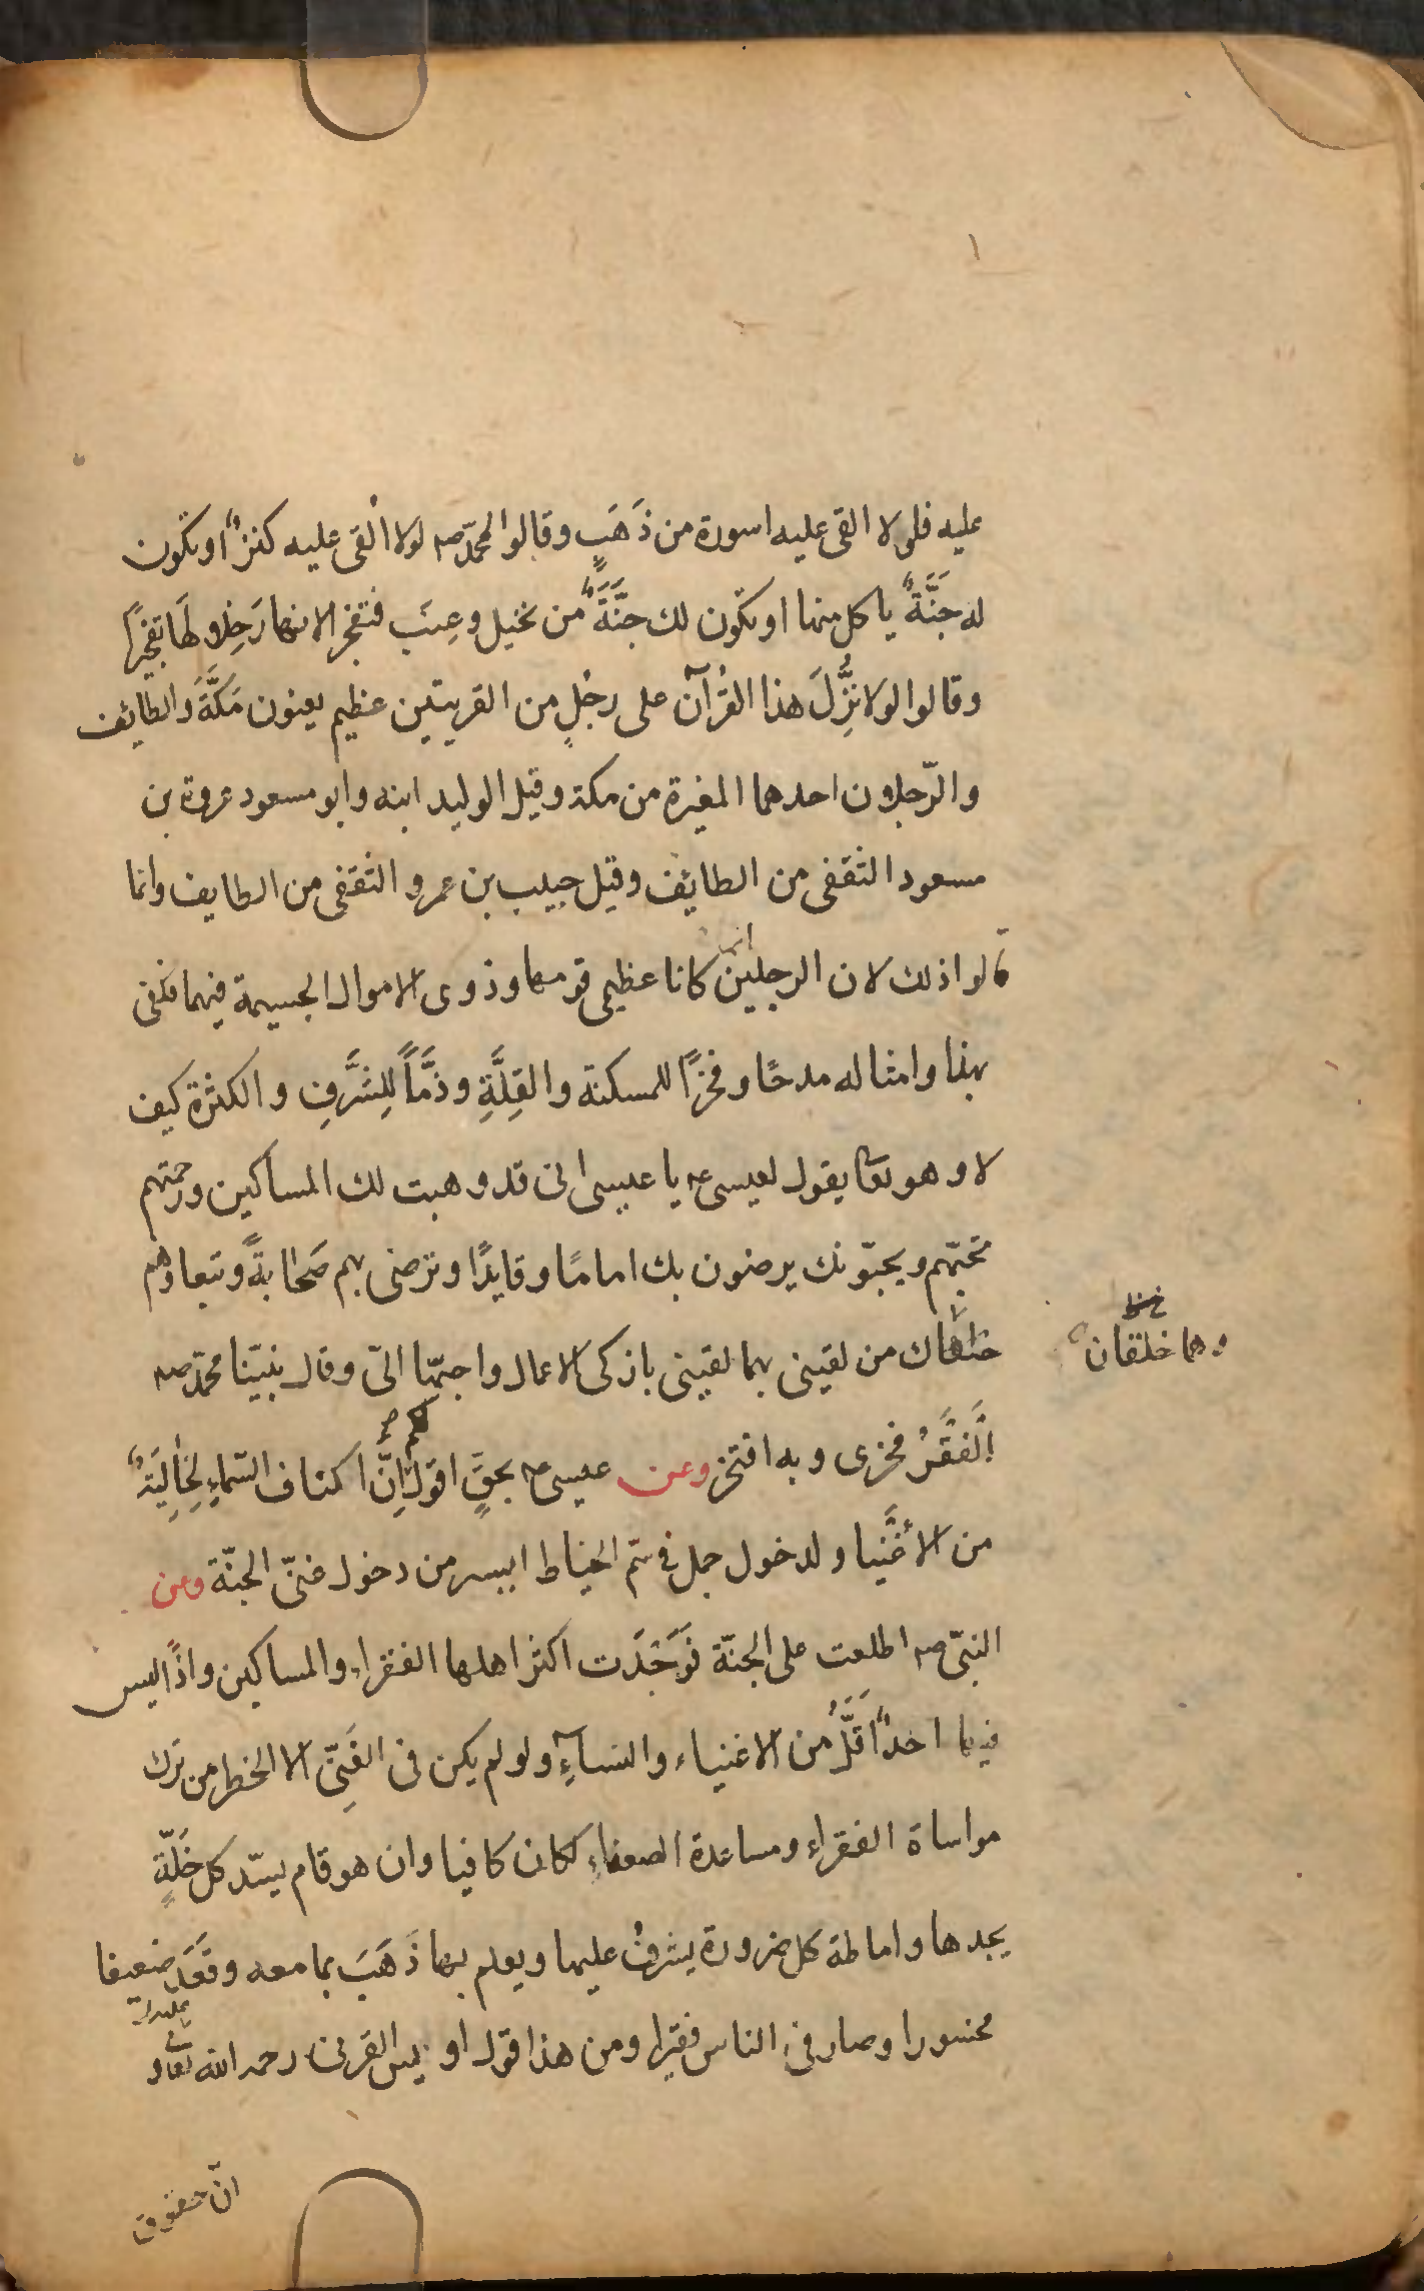 عليه فلولا القى عليه اسورة من ذَهَبٍ وقالوا لمحمّد صه لولا اُلقى عليه كنزٌ او تكون
له جَنَّةٌ ياكل منها او تكون لك جنَّةٌ من نخيل وعِنَب فتفجر الانهارَ خِلالها تفجيرًا
وقالوا لولا نُزِّلَ هذا القُرآن على رجُلٍ من القريتين عظيم يعنون مَكَّةَ والطائف
والرّجلان احدهما المغيرة من مكة وقيل الوليد ابنه وابو مسعود عروة بن
مسعود الثقفى من الطائف وقيل حبيب بن عمرو الثقفى من الطايف وانما
قالوا ذلك لان الرجلين كانا عظيمى قومهما وذوى الاموال الجسيمة فيهما فكفى
بهذا وامثاله مدحًا وفخرًا للمسكنة والقِلَّةِ وذَمًّا لِلشَّرَفِ والكثرة كيف
لا وهو تعا يقول لعيسى عه يا عيسى انى قد وهبت لك المساكين ورحمتهم
تحبّهم ويحبّونك يرضون بك امامًا وقايدًا وترضى بهم صَحابةً وتبعا وهم
خلقان من لقينى بهما لقينى بازكى الاعمال واحبّها الىّ وقال نبيّنا محمّد صه
وهما خلقان
اَلفَقْرُ فخرى وبه افتخر وعن عيسى عه بحقٍّ اقول اِنَّ اكناف السّماءِ لخالِيَةٌ
من الأغْنيا ولدخول جمل فى سمّ الخياط ايسر من دخول غنىّ الجنّة وعن
النبىّ صه اطلعت على الجنّة فوَجَدَت اكثر اهلها الفقراء والمساكين واذا ليس
فيها احدٌ اَقَلُّ من الاغنياء والنسآءِ ولو لم يكن فى الغَنِىّ الا الخطر من ترك
مواساة الفقراء ومساعدة الضعفاء لكان كافيا وان هو قام يسدّ كل خَلّةٍ
يجدها واماطة كل ضرورة يشرفُ عليها ويعلم بها ذَهَبَ بما معه وقَعَدَ ضعيفا
محسورا وصار فى الناس فقيرا ومن هذا قول اويس القرنى رحمه الله تعا و
انّ حقوق